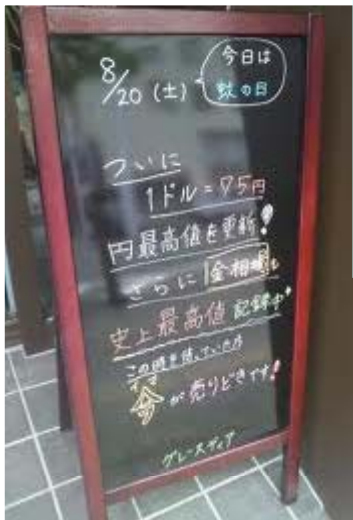 8/20 (土)
今日は
蚊の日
ついに
1ドル=75円
円最高値を更新!
さらに 金相場も
史上最高値 記録中
この時を待っていた方
今が売りどきです!
グレースディア